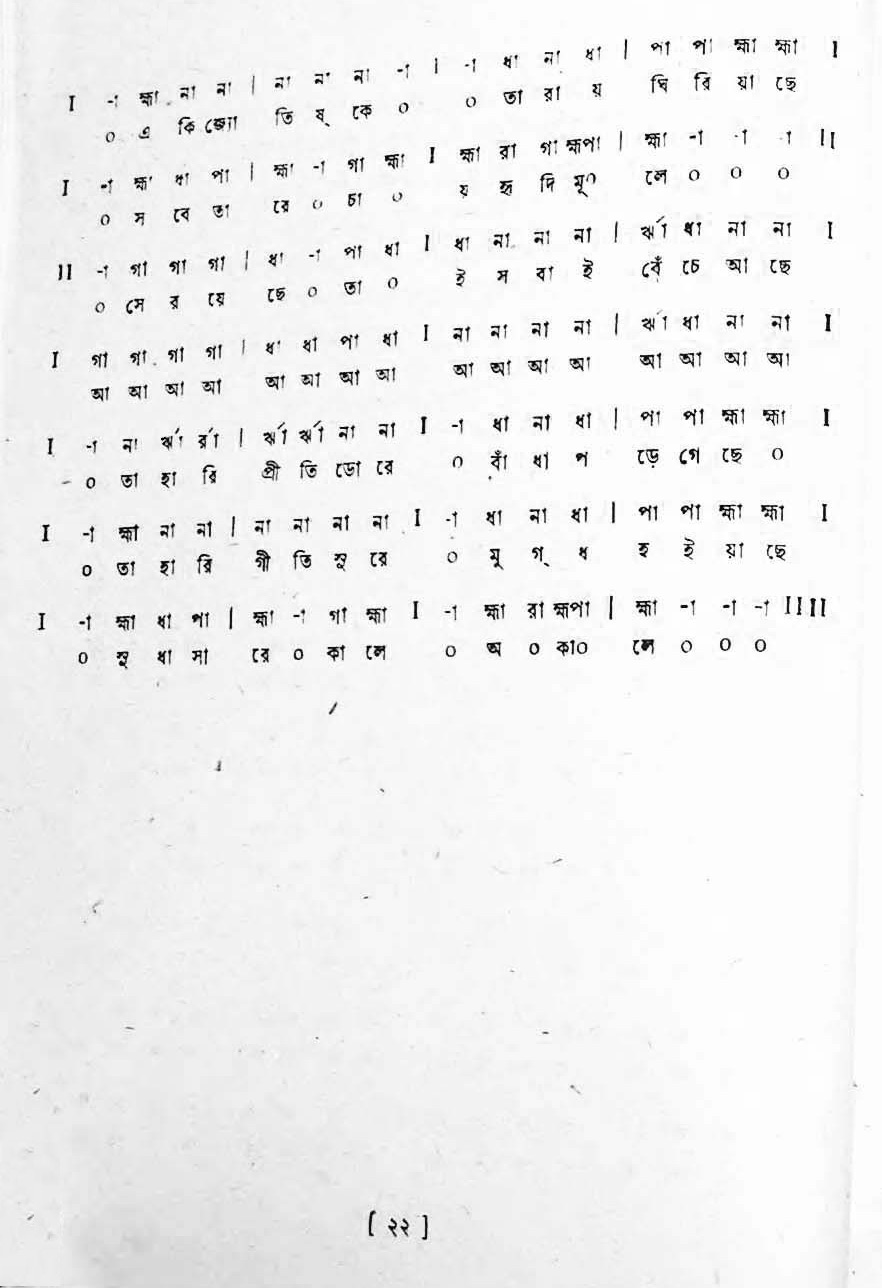 I -া হ্মা না না | না না না -া I -া ধা না ধা | পা পা হ্মা হ্মা I
০ এ কি জ্যো তি ষ্ কে ০ ০ তা রা য় ঘি রি য়া ছে
I -া হ্মা ধা পা | হ্মা -া গা হ্মা I হ্মা রা গা হ্মপা | হ্মা -া -া -া II
০ স বে তা রে ০ চা ০ য় হৃ দি মূ০ লে ০ ০ ০
II -া গা গা গা | ধা -া পা ধা I ধা না না না | র্ঋা ধা না না I
০ সে র য়ে ছে ০ তা ০ ই স বা ই বেঁ চে আ ছে
I গা গা গা গা | ধা ধা পা ধা I না না না না | র্ঋা ধা না না I
আ আ আ আ আ আ আ আ আ আ আ আ আ আ আ আ
I -া না র্ঋা র্রা | র্ঋা র্ঋা না না I -া ধা না ধা | পা পা হ্মা হ্মা I
০ তা হা রি প্রী তি ডো রে ০ বাঁ ধা প ড়ে গে ছে ০
I -া হ্মা না না | না না না না I -া ধা না ধা | পা পা হ্মা হ্মা I
০ তা হা রি গী তি সু রে ০ মু গ্ ধ হ ই য়া ছে
I -া হ্মা ধা পা | হ্মা -া গা হ্মা I -া হ্মা রা হ্মপা | হ্মা -া -া -া II II
০ সু ধা সা রে ০ কা লে ০ অ ০ কা০ লে ০ ০ ০
[ ২২ ]